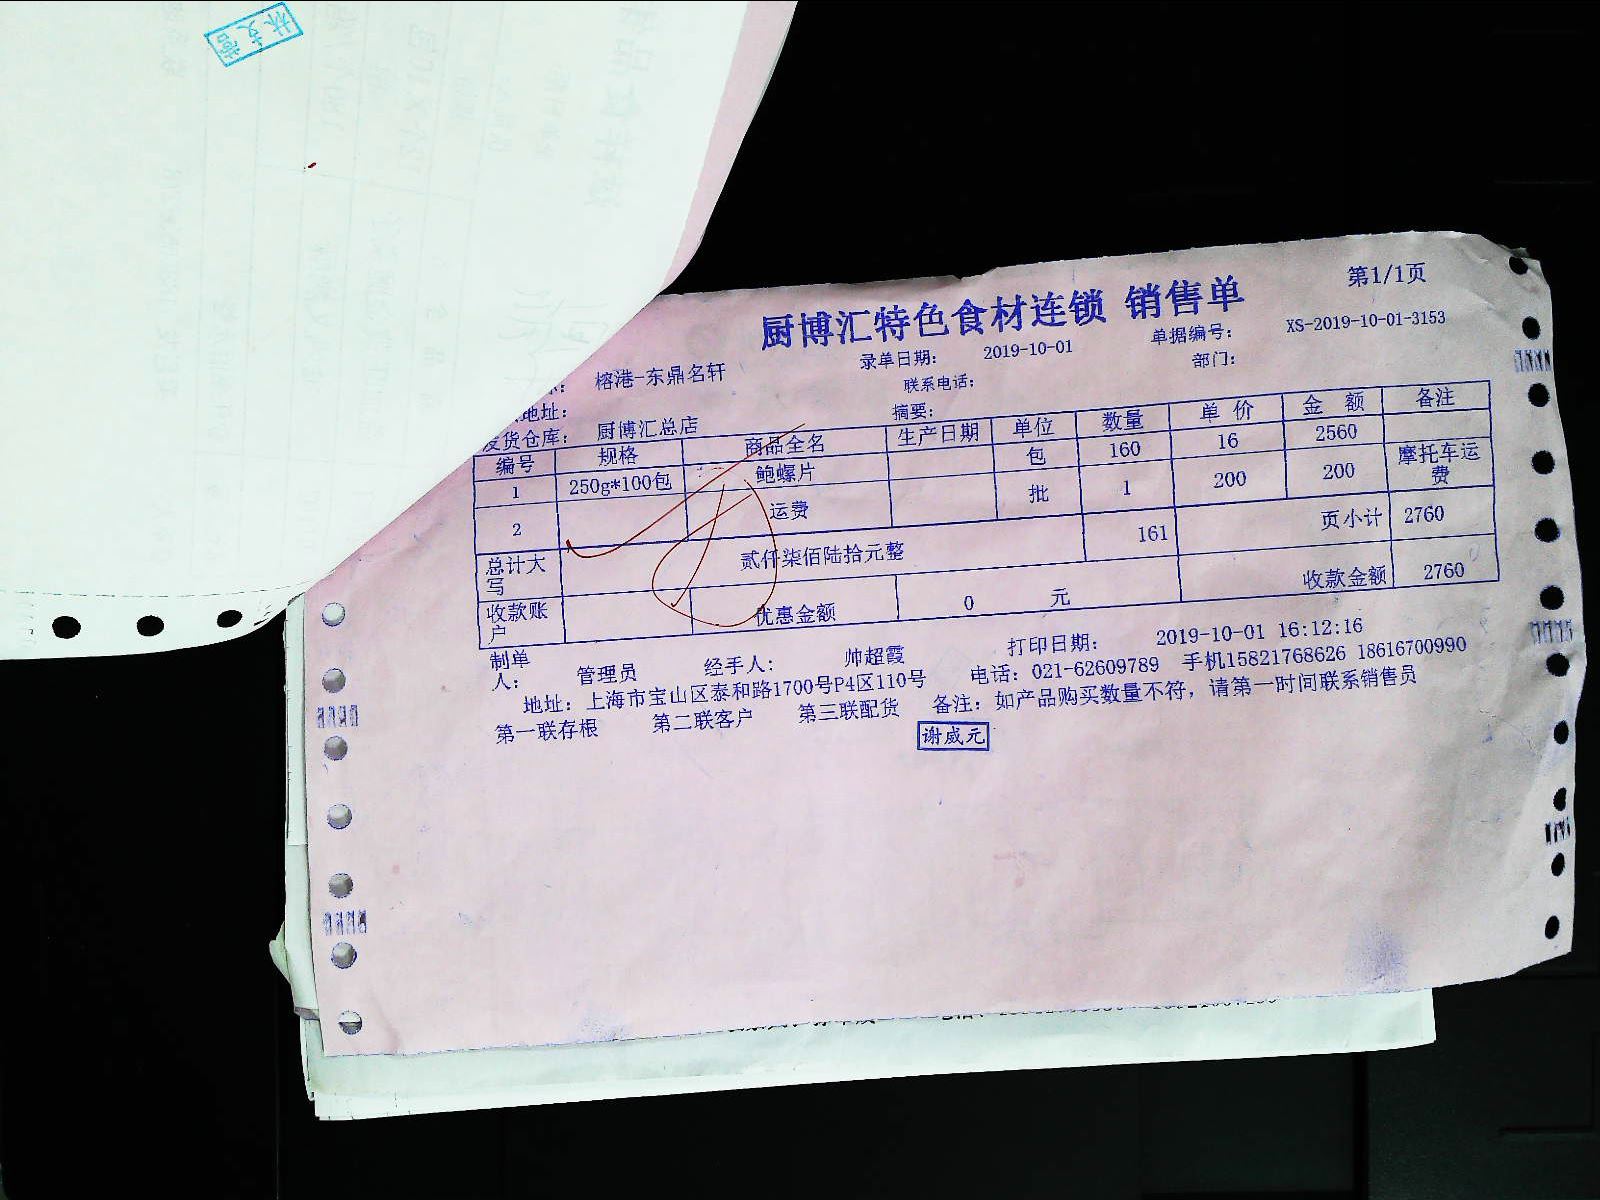 第1/1页
厨博汇特色食材连锁 销售单
榕港-东鼎名轩 录单日期： 2019-10-01 单据编号： XS-2019-10-01-3153
地址： 联系电话： 部门：
发货仓库： 厨博汇总店 摘要：
编号 规格 商品全名 生产日期 单位 数量 单 价 金 额 备注
1 250g*100包 鲍螺片 包 160 16 2560
2 运费 批 1 200 200 摩托车运费
总计大写 贰仟柒佰陆拾元整 161 页小计 2760
收款账户 优惠金额 0 元 收款金额 2760
制单人： 管理员 经手人： 帅超霞 打印日期： 2019-10-01 16:12:16
地址：上海市宝山区泰和路1700号P4区110号 电话：021-62609789 手机15821768626 18616700990
第一联存根 第二联客户 第三联配货 备注：如产品购买数量不符，请第一时间联系销售员
谢威元